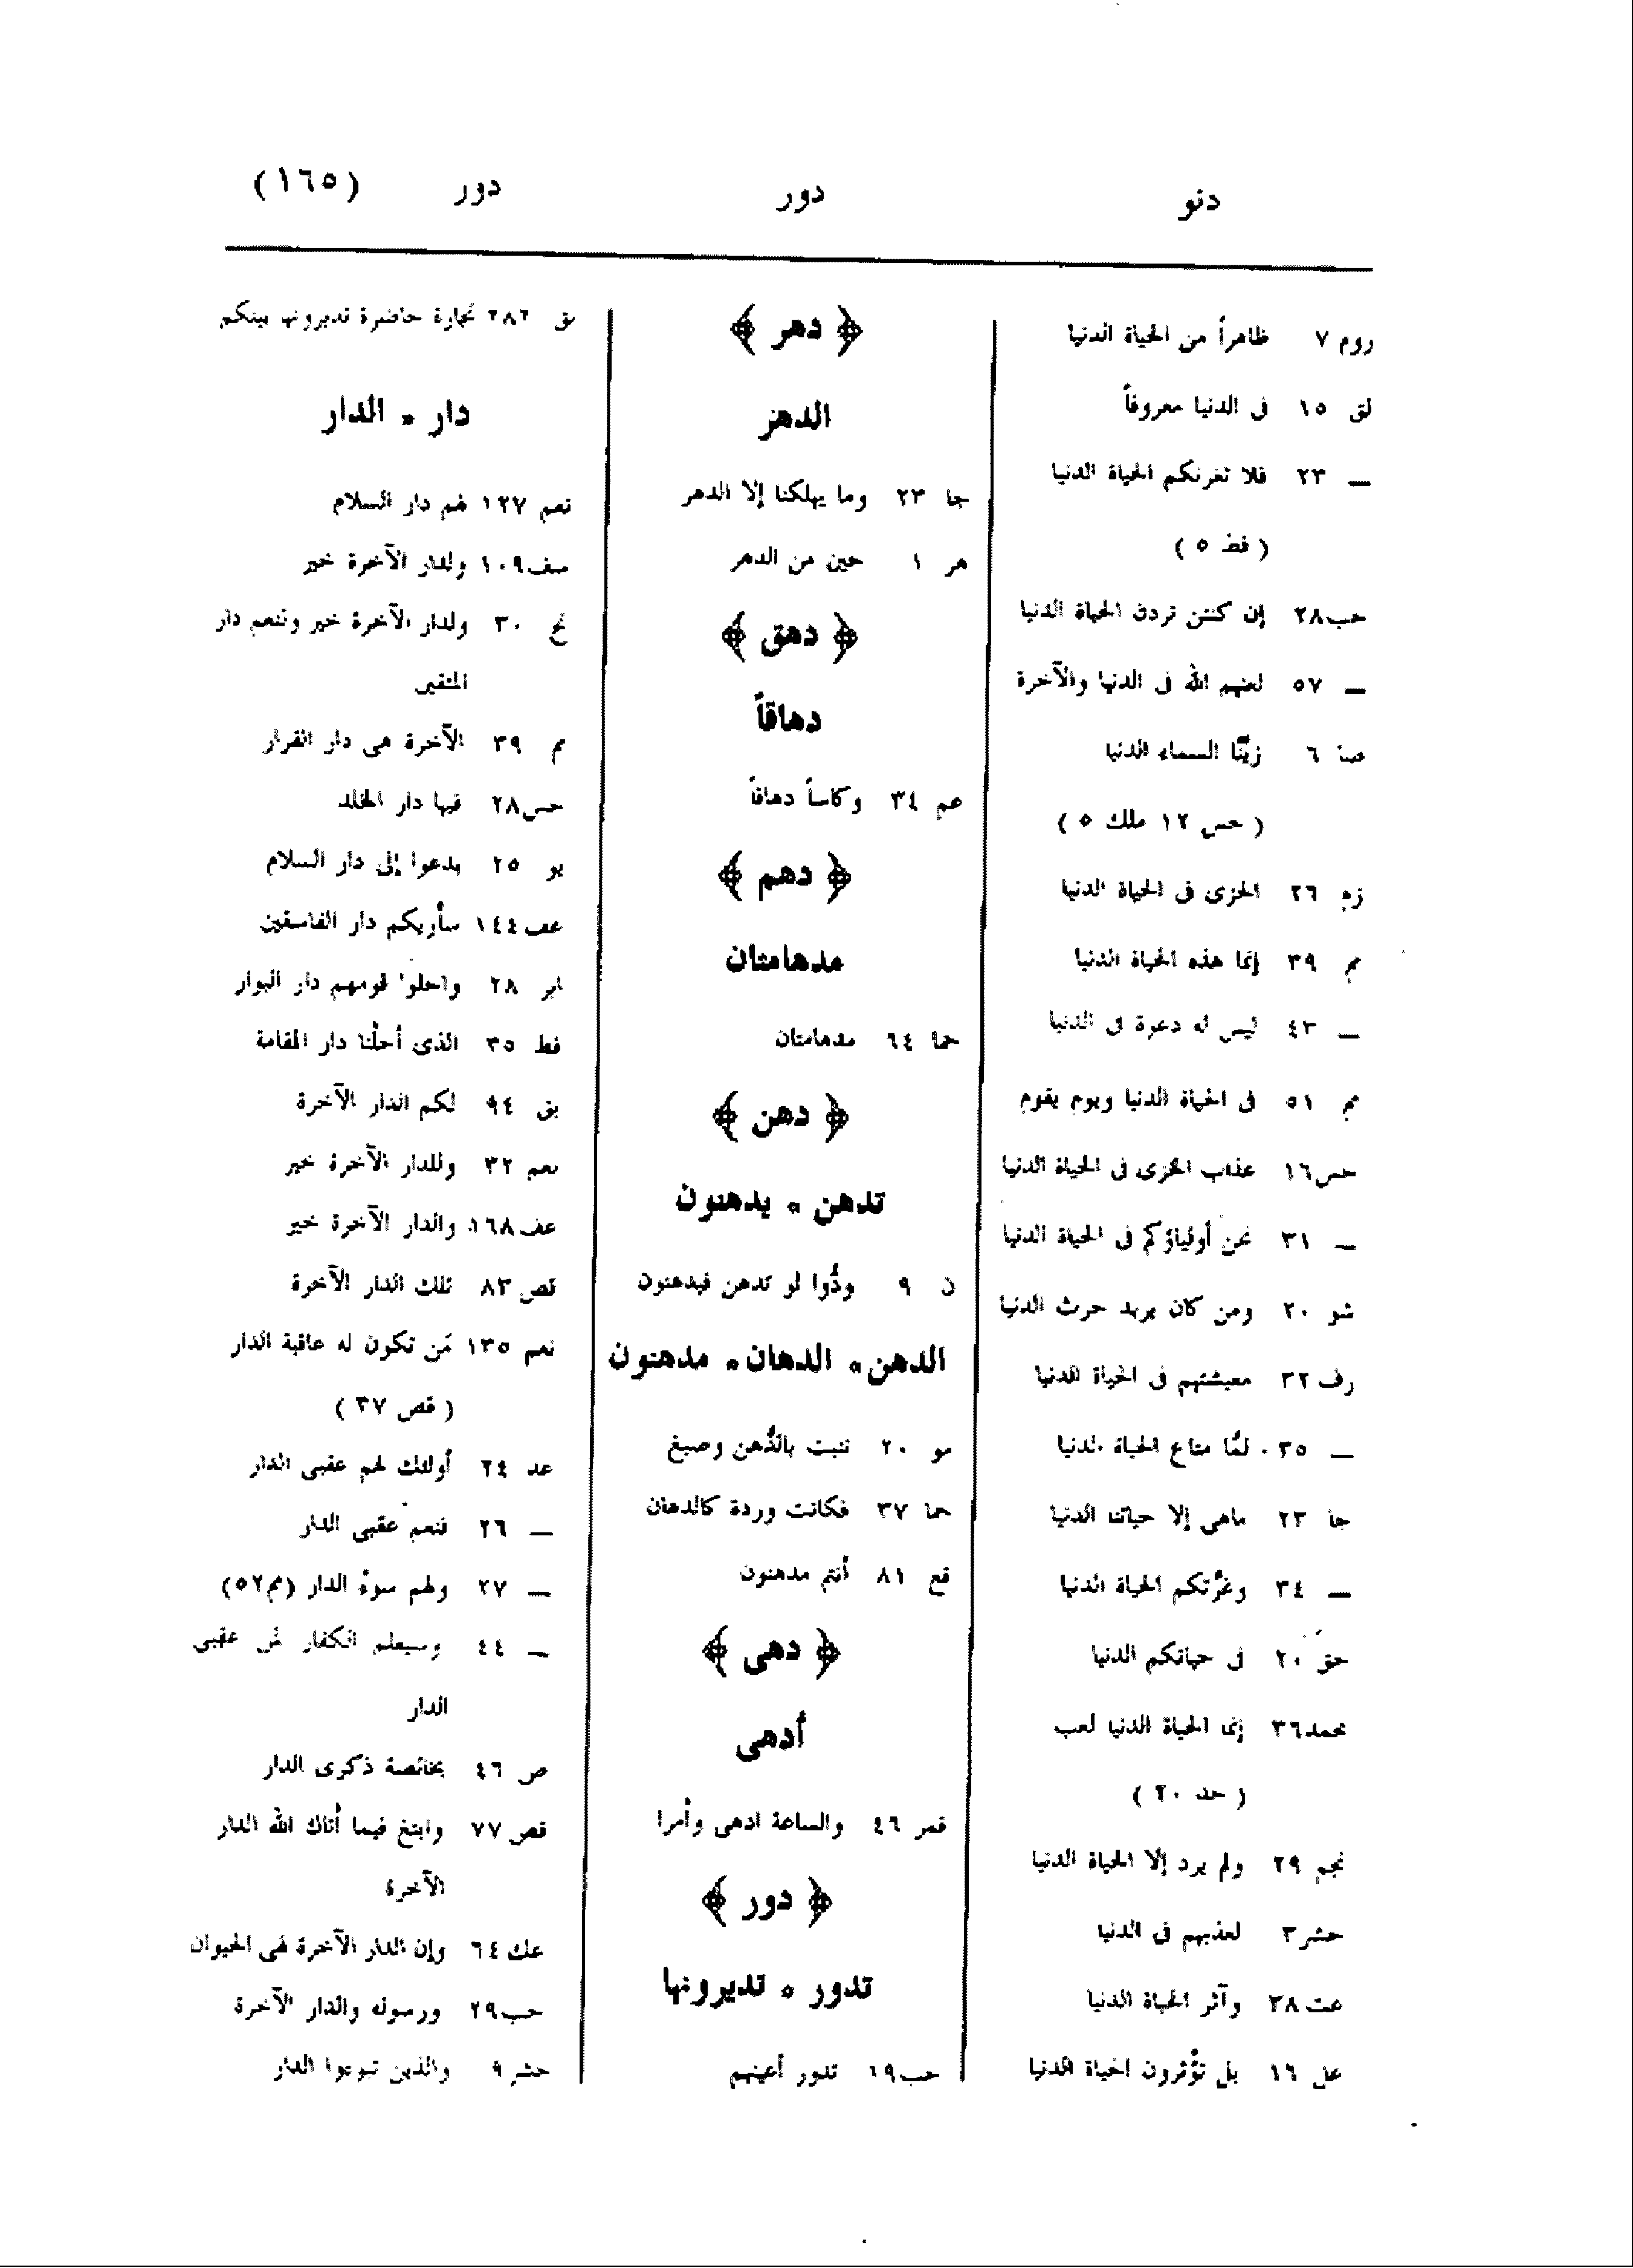 دنو
دور
دور (١٦٥)
روم ٧ ظاهراً من الحياة الدنيا
لق ١٥ فى الدنيا معروفاً
— ٢٣ فلا تغرنكم الحياة الدنيا
( فط ٥ )
حب٢٨ إن كنتن تردن الحياة الدنيا
— ٥٧ لعنهم الله فى الدنيا والآخرة
صا ٦ زيّنّا السماء الدنيا
( حس ١٢ ملك ٥ )
زم ٢٦ الخزى فى الحياة الدنيا
مم ٣٩ إنما هذه الحياة الدنيا
— ٤٣ ليس له دعوة فى الدنيا
مم ٥١ فى الحياة الدنيا ويوم يقوم
حس١٦ عذاب الخزى فى الحياة الدنيا
— ٣١ نحن أولياؤكم فى الحياة الدنيا
شو ٢٠ ومن كان يريد حرث الدنيا
رف ٣٢ معيشتهم فى الحياة الدنيا
— ٣٥ لمّا متاع الحياة الدنيا
جا ٢٣ ماهى إلا حياتنا الدنيا
— ٣٤ وغرّتكم الحياة الدنيا
حق ٢٠ فى حياتكم الدنيا
محمد٣٦ إنما الحياة الدنيا لعب
( حد ٢٠ )
نجم ٢٩ ولم يرد إلا الحياة الدنيا
حشر٣ لعذبهم فى الدنيا
عت٣٨ وآثر الحياة الدنيا
عل ١٦ بل تؤثرون الحياة الدنيا
﴿ دهر ﴾
الدهر
جا ٢٣ وما يهلكنا إلا الدهر
هر ١ حين من الدهر
﴿ دهق ﴾
دهاقاً
عم ٣٤ وكاساً دهاقاً
﴿ دهم ﴾
مدهامتان
حما ٦٤ مدهامتان
﴿ دهن ﴾
تدهن ٠ يدهنون
ن ٩ ودُّوا لو تدهن فيدهنون
الدهن ٠ الدهان ٠ مدهنون
مو ٢٠ تنبت بالدُّهن وصبغ
حما ٣٧ فكانت وردة كالدهان
قع ٨١ أنتم مدهنون
﴿ دهى ﴾
أدهى
قمر ٤٦ والساعة ادهى وأمرا
﴿ دور ﴾
تدور ٠ تديرونها
حب١٩ تدور أعينهم
بق ٢٨٢ تجارة حاضرة تديرونها بينكم
دار ٠ الدار
نعم ١٢٧ لهم دار السلام
سف١٠٩ ولدار الآخرة خير
نح ٣٠ ولدار الآخرة خير ولنعم دار
المتقين
مم ٣٩ الآخرة هى دار القرار
حس٢٨ فيها دار الخلد
يو ٢٥ يدعوا إلى دار السلام
عف١٤٤ سأريكم دار الفاسقين
ابر ٢٨ واحلوا قومهم دار البوار
فط ٣٥ الذى أحلّنا دار المقامة
بق ٩٤ لكم الدار الآخرة
نعم ٣٢ وللدار الآخرة خير
عف١٦٨ والدار الآخرة خير
قص ٨٣ تلك الدار الآخرة
نعم ١٣٥ مَن تكون له عاقبة الدار
( قص ٣٧ )
عد ٢٤ أولئك لهم عقبى الدار
— ٢٦ فنعم عقبى الدار
— ٢٧ ولهم سوءُ الدار (مم٥٢)
— ٤٤ وسيعلم الكفار لمن عقبى
الدار
ص ٤٦ بخالصة ذكرى الدار
قص ٧٧ وابتغ فيما أتاك الله الدار
الآخرة
عك ٦٤ وإن الدار الآخرة لهى الحيوان
حب٢٩ ورسوله والدار الآخرة
حشر ٩ والذين تبوءوا الدار